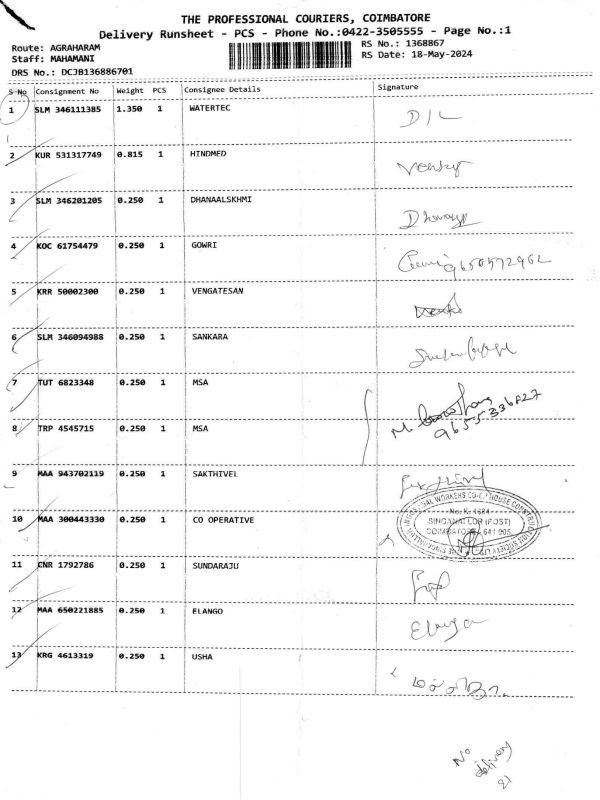 THE PROFESSIONAL COURIERS, COIMBATORE
Delivery Runsheet - PCS - Phone No.:0422-3505555 - Page No.:1
Route: AGRAHARAM
RS No.: 1368867
Staff: MAHAMANI
RS Date: 18-May-2024
DRS No.: DCJB136886701
S No Consignment No Weight PCS Consignee Details Signature
1 SLM 346111385 1.350 1 WATERTEC D/L
2 KUR 531317749 0.815 1 HINDMED Venky
3 SLM 346201205 0.250 1 DHANAALSKHMI
4 KOC 61754479 0.250 1 GOWRI
5 KRR 50002300 0.250 1 VENGATESAN
6 SLM 346094988 0.250 1 SANKARA
7 TUT 6823348 0.250 1 MSA
8 TRP 4545715 0.250 1 MSA
9655336827
9 MAA 943702119 0.250 1 SAKTHIVEL
10 MAA 300443330 0.250 1 CO OPERATIVE
No. K. 1684
SINGANALLOR (POST)
COIMBATORE - 641 005.
11 CNR 1792786 0.250 1 SUNDARAJU
12 MAA 650221885 0.250 1 ELANGO
13 KRG 4613319 0.250 1 USHA
No
delivery
21